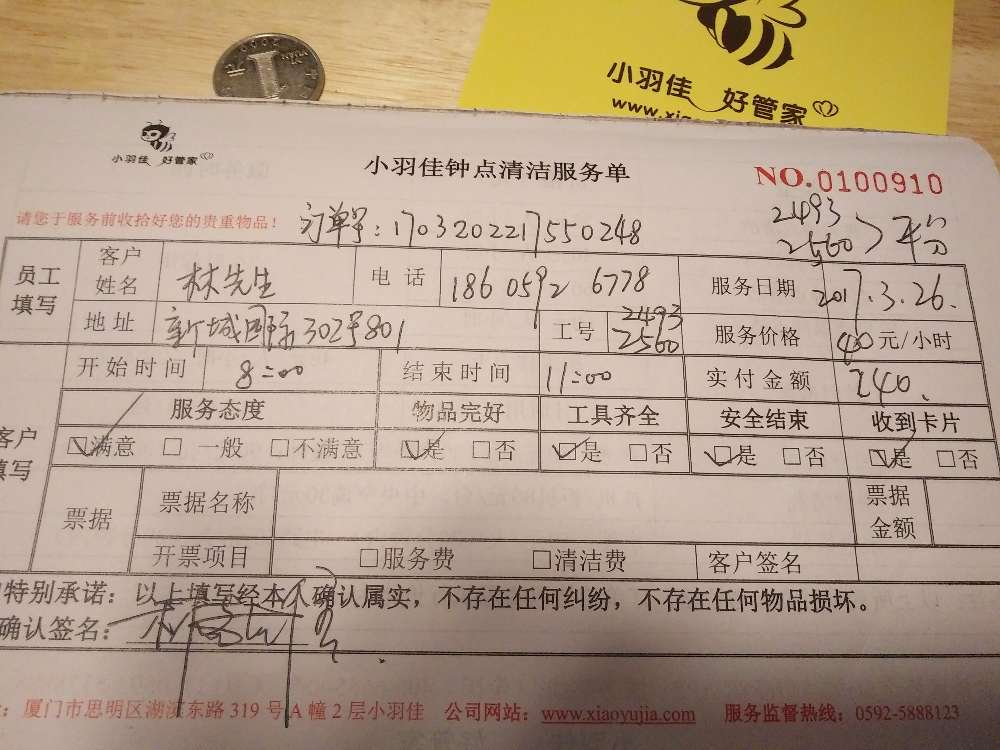 小羽佳 好管家
www.xia
小羽佳 好管家
小羽佳钟点清洁服务单
NO.0100910
请您于服务前收拾好您的贵重物品！
订单号：1703202217550248
2493
2560 > 平分
员工填写 客户姓名 林先生 电话 186 0592 6778 服务日期 2017.3.26.
地址 新城国际302号801 工号 2493 2560 服务价格 40元/小时
客户填写 开始时间 8:00 结束时间 11:00 实付金额 240.
服务态度 物品完好 工具齐全 安全结束 收到卡片
☑满意 □一般 □不满意 ☑是 □否 ☑是 □否 ☑是 □否 ☑是 □否
票据 票据名称 票据金额
开票项目 □服务费 □清洁费 客户签名
特别承诺：以上填写经本人确认属实，不存在任何纠纷，不存在任何物品损坏。
确认签名：
：厦门市思明区湖滨东路 319 号 A 幢 2 层小羽佳 公司网站：www.xiaoyujia.com 服务监督热线：0592-5888123